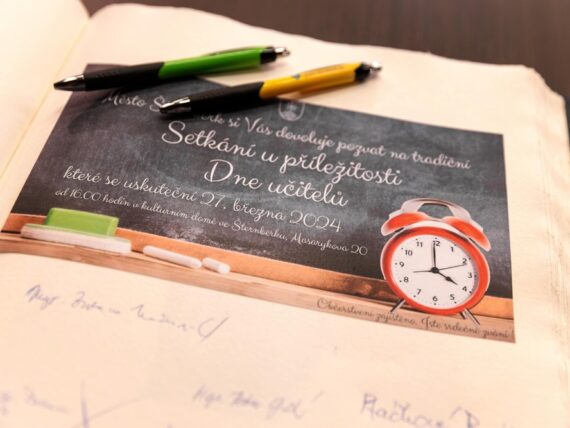 Město si Vás dovoluje pozvat na tradiční
Setkání u příležitosti
Dne učitelů
které se uskuteční 27. března 2024
od 16.00 hodin v kulturním domě ve Šternberku, Masarykova 20
12
1
2
3
4
5
6
7
8
9
10
11
Občerstvení zajištěno. Jste srdečně zváni!
Mgr.
Mgr.